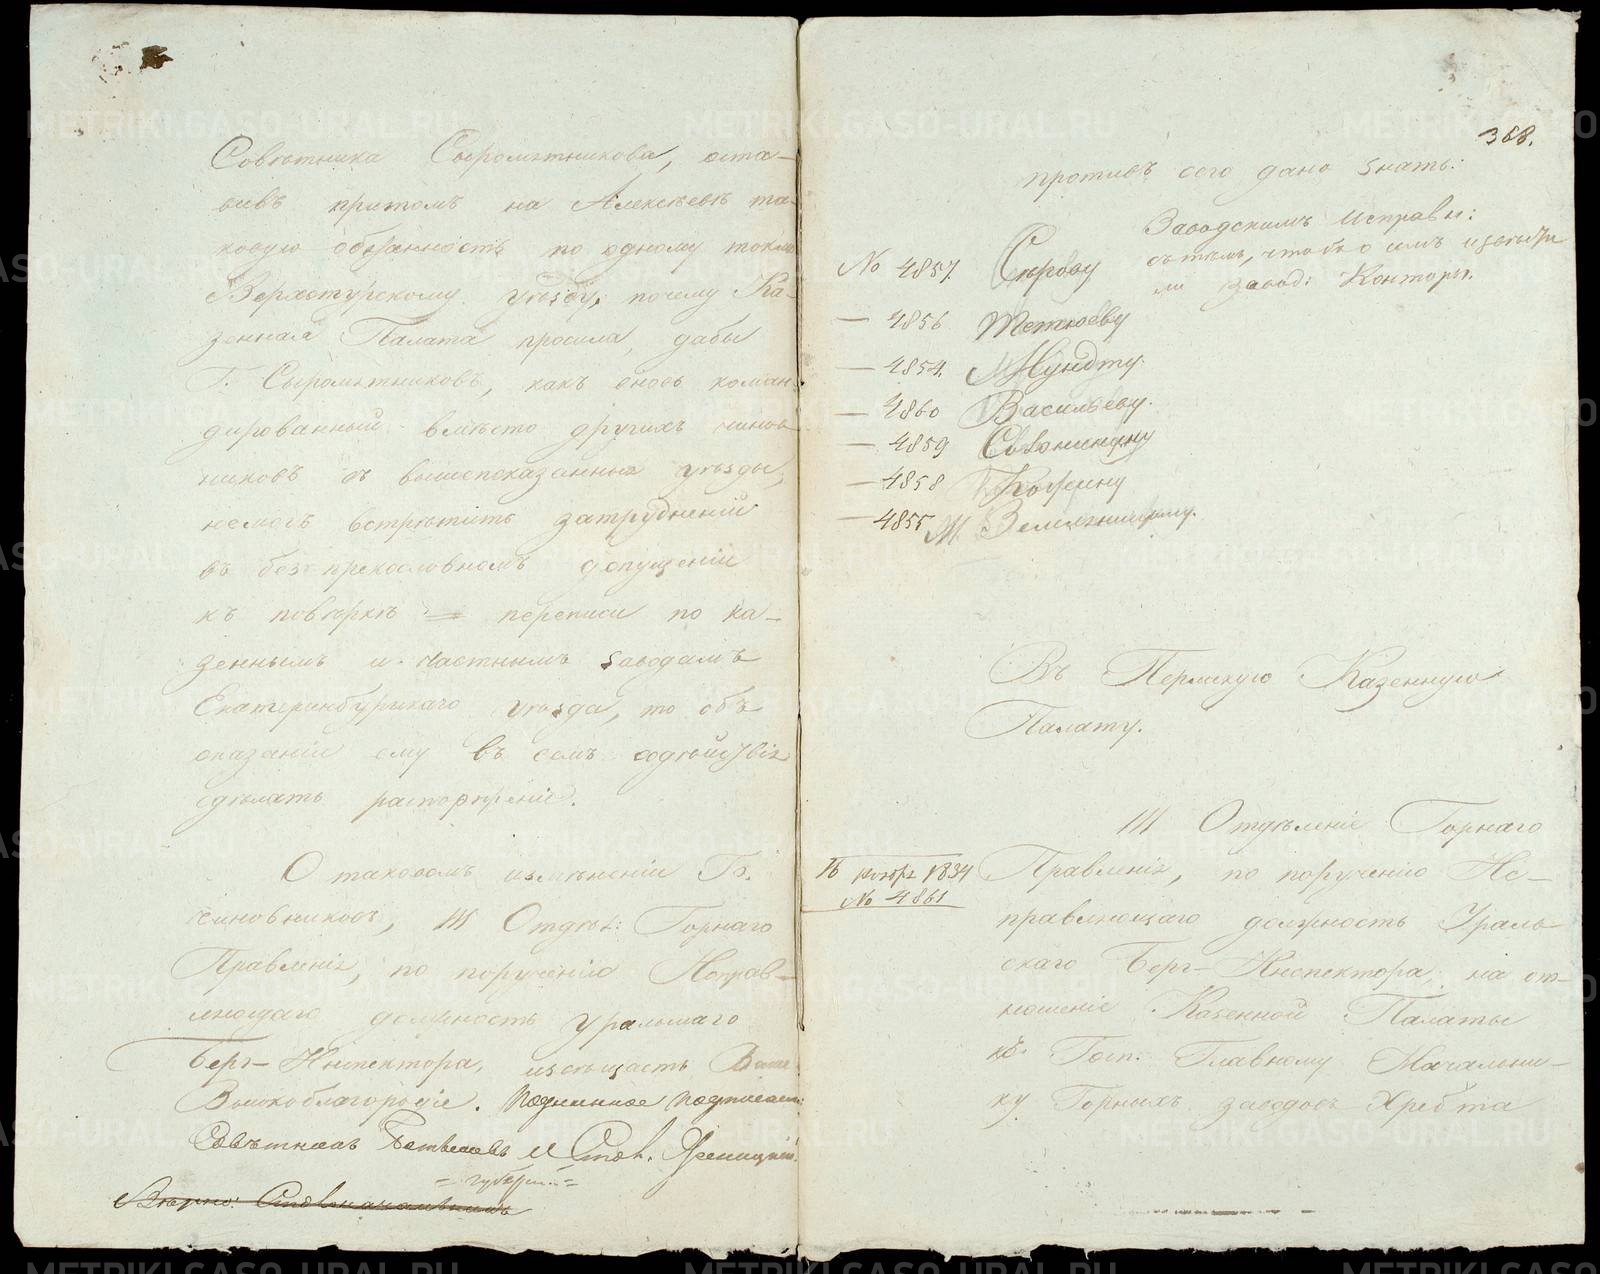 Совѣтника Сыромятникова, оста-
вивъ притомъ на Алексѣевѣ та-
ковую обязанность по одному токмо
Верхотурскому уѣзду, почему Ка-
зенная Палата просила, дабы
Г. Сыромятниковъ, какъ вновь коман-
дированный вмѣсто другихъ чинов-
никовъ въ вышесказанные уѣзды,
немогъ встрѣтить затрудненій
въ безпрекословномъ допущеніи
къ повѣркѣ переписи по ка-
зеннымъ и частнымъ заводамъ
Екатеринбургскаго уѣзда, то объ
оказаніи ему въ семъ содѣйствія
сдѣлать распоряженіе.
О таковомъ измѣненіи Гг.
чиновниковъ, III Отдѣл: Горнаго
Правленія, по порученію Исправ-
ляющаго должность Уральскаго
Берг-Инспектора, извѣщаетъ Ваше
Высокоблагородіе. Подлинное подписали:
Совѣтникъ и Стол.
Вѣрно: Столоначальникъ
368.
противъ сего дано знать:
Заводскимъ Исправн:
съ тѣмъ, чтобъ о семъ извѣсти
ли завод: Конторы.
No 4857. Сырову
— 4856 Тетюеву
— 4854. Мундту.
— 4860 Васильеву.
— 4859
— 4858
— 4855
Въ Пермскую Казенную
Палату.
16 ноября 1834
No 4861
III Отдѣленіе Горнаго
Правленія, по порученію Ис-
правляющаго должность Ураль-
скаго Берг-Инспектора, на от-
ношеніе Казенной Палаты
къ Госп. Главному Начальни-
ку Горныхъ заводовъ Хребта
METRIKI.GASO-URAL.RU